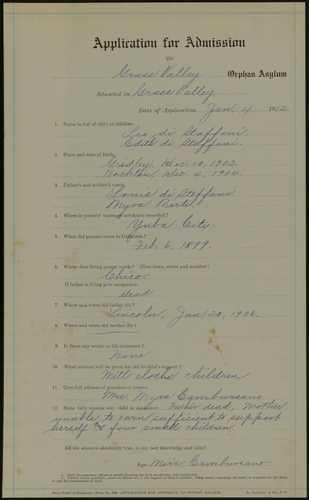 Application for Admission
TO
Grass Valley Orphan Asylum
Situated in Grass Valley
Date of Application, Jan 4 1912.
1. Name in full of child or children.
Leo di Steffani.
Edith di Steffani.
2. Place and date of birth.
Gridley, Dec. 10, 1902.
Rocklin, Dec. 4, 1904.
3. Father's and mother's name.
Louis di Steffani
Myra Berte
4. Where is parents' marriage certificate recorded?
Yuba City.
5. When did parents come to California?
Feb. 6, 1899.
6. Where does living parent reside? (Give town, street and number.)
Chico.
If father is living give occupation.
dead.
7. Where and when did father die?
Lincoln, Jan 20, 1906.
8. Where and when did mother die?
9. Is there any estate or life insurance?
None
10. What amount will be given for aid to child's support?
Will clothe children
11. Give full address of guardian or parent.
Mrs. Myra Cambureano
12. State fully reasons why child is Father dead, Mother
unable to earn sufficient to support
herself & four small children.
All the above is absolutely true, to my best knowledge and belief.
Sign Mira Cambureano